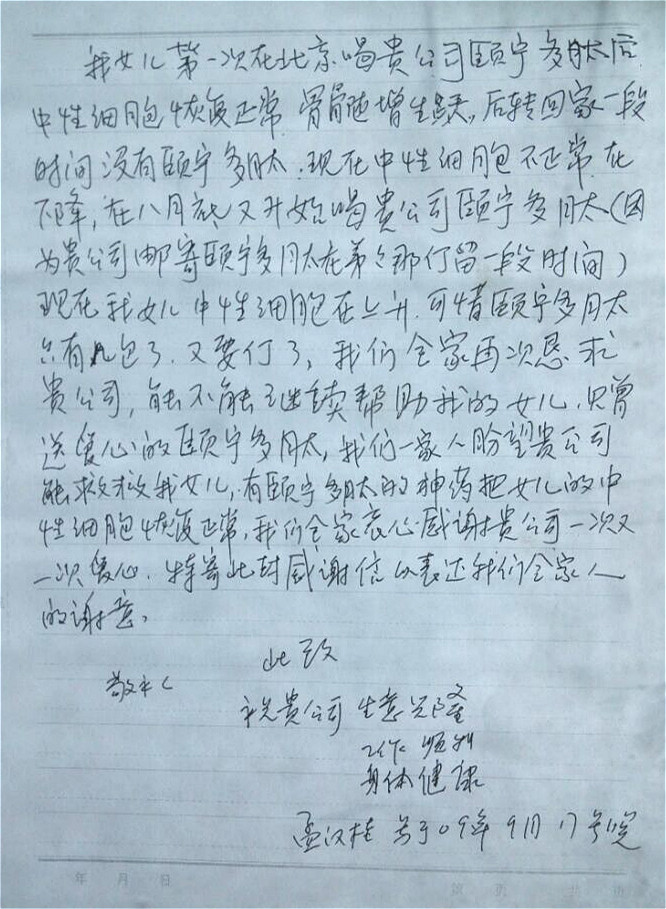 我女儿第一次在北京喝贵公司颐宁多肽后
中性细胞恢复正常 骨髓增生跃，后转回家一段
时间没有颐宁多肽．现在中性细胞不正常 在
下降，在八月底又开始喝贵公司颐宁多肽（因
为贵公司邮寄颐宁多肽在弟弟那停留一段时间）
现在我女儿中性细胞在上升．可惜颐宁多肽
只有几包了．又要停了，我们全家再次恳求
贵公司，能不能继续帮助我的女儿．只曾
送爱心的颐宁多肽，我们一家人盼望贵公司
能救救我女儿，有颐宁多肽的神药把女儿的中
性细胞恢复正常，我们全家衷心感谢贵公司一次又
一次爱心．特寄此封感谢信以表达我们全家人
的谢意。
此致
敬礼
祝贵公司 生意兴隆
工作 顺利
身体健康
孟汉桂 书于09年9月17号晚
年 月 日